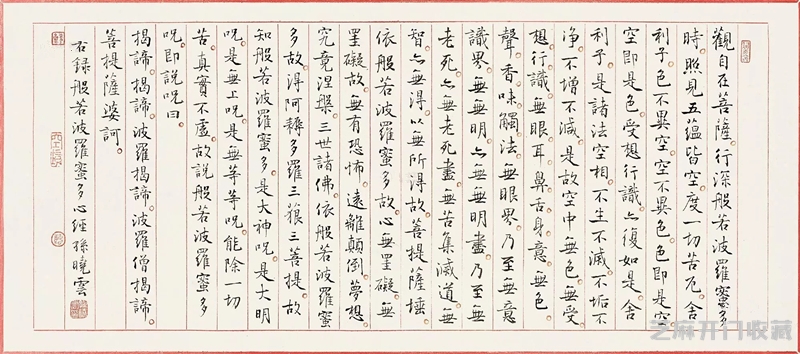 觀自在菩薩。行深般若波羅蜜多
時照見五蘊皆空度一切苦厄。舍
利子。色不異空。空不異色。色即是空。
空即是色。受想行識。亦復如是。舍
利子。是諸法空相。不生不滅。不垢不
净。不增不減。是故空中無色。無受
想行識。無眼耳鼻舌身意。無色
聲香味觸法。無眼界。乃至無意
識界。無無明。亦無無明盡。乃至無
老死。亦無老死盡。無苦集滅道。無
智亦無得。以無所得故。菩提薩埵
依般若波羅蜜多故。心無罣礙。無
罣礙故。無有恐怖。遠離顛倒夢想。
究竟涅槃。三世諸佛。依般若波羅蜜
多故。得阿耨多羅三藐三菩提。故
知般若波羅蜜多。是大神呪。是大明
呪。是無上呪。是無等等呪。能除一切
苦。真實不虛。故說般若波羅蜜多
呪。即說呪曰。
揭諦。揭諦。波羅揭諦。波羅僧揭諦。
菩提薩婆訶。
右録般若波羅蜜多心經孫曉雲
芝麻开门收藏